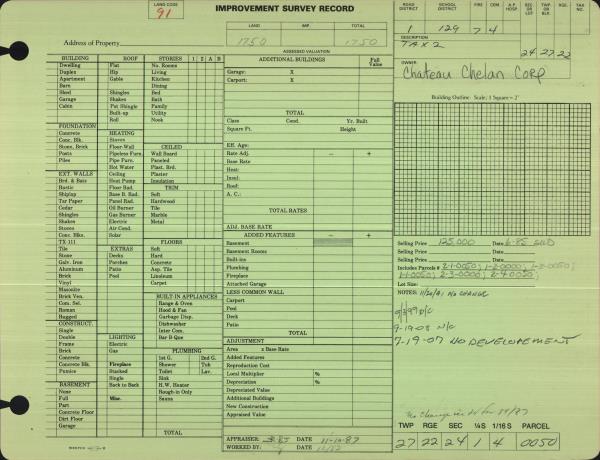 LAND CODE
91
IMPROVEMENT SURVEY RECORD
ROAD DISTRICT SCHOOL DISTRICT FIRE CEM A.P. HOSP.
1 129 7 4
DESCRIPTION
TAX 2
24.27.22
OWNER
Chateau Chelan Corp
Building Outline Scale: 1 Square = 2'
LAND IMP. TOTAL
1750 1750
Address of Property
ASSESSED VALUATION
BUILDING ROOF STORIES 1 2 A B
Dwelling Flat No. Rooms
Duplex Hip Living
Apartment Gable Kitchen
Barn Dining
Shed Shingles Bed
Garage Shakes Bath
Cabin Pat Shingle Family
Built-up Utility
Roll Nook
FOUNDATION
Concrete HEATING
Conc. Blk. Stoves
Stone, Brick Floor-Wall CEILED
Posts Pipeless Furn. Wall Board
Piles Pipe Furn. Paneled
Hot Water Plast. Brd.
EXT. WALLS Ceiling Plaster
Brd. & Bats Heat Pump Insulation
Rustic Floor Rad. TRIM
Shiplap Base B. Rad. Soft
Tar Paper Panel Rad. Hardwood
Cedar Oil Burner Tile
Shingles Gas Burner Marble
Shakes Electric Metal
Stores Air Cond.
Conc. Blks. Solar
TX 111 FLOORS
Tile EXTRAS Soft
Stone Decks Hard
Galv. Iron Porches Concrete
Aluminum Patio Asp. Tile
Brick Pool Linoleum
Vinyl Carpet
Masonite
Brick Ven. BUILT-IN APPLIANCES
Com. Sel. Range & Oven
Roman Hood & Fan
Rugged Garbage Disp.
CONSTRUCT. Dishwasher
Single Inter Com.
Double LIGHTING Bar-B-Que
Frame Electric
Brick Gas PLUMBING
Concrete 1st G. 2nd G.
Concrete Blk. Fireplace Shower Tub
Pumice Stacked Toilet Lav.
Single Sink
BASEMENT Back to Back H.W. Heater
None Rough-in Only
Full Misc. Sauna
Part
Concrete Floor
Dirt Floor
Garage TOTAL
ADDITIONAL BUILDINGS Full Value
Garage: X
Carport: X
TOTAL
Class Cond. Yr. Built
Square Ft. Height
Eff. Age:
Rate Adj. − +
Base Rate
Heat:
Insul:
Roof:
A. C.:
TOTAL RATES
ADJ. BASE RATE
ADDED FEATURES − +
Basement
Basement Rooms
Built-ins
Plumbing
Fireplace
Attached Garage
LESS COMMON WALL
Carport
Pool
Deck
Patio
TOTAL
ADJUSTMENT
Area x Base Rate
Added Features
Reproduction Cost
Local Multiplier %
Depreciation %
Depreciated Value
Additional Buildings
New Construction
Appraised Value
APPRAISER DATE 11-10-87
WORKED BY DATE
Selling Price 125,000 Date 6-85 SWD
Selling Price Date
Selling Price Date
Includes Parcels # 2-1-0050; 1-2-0000; 1-3-0050;
1-1-0050; 2-3-0000; 2-4-0020
Lot Size:
NOTES: 11/20/91 NO CHANGE
9/3/99 N/C
9-19-03 N/C
7-19-07 NO DEVELOPEMENT
No change
TWP RGE SEC ¼S 1/16 S PARCEL
27 22 24 1 4 0050